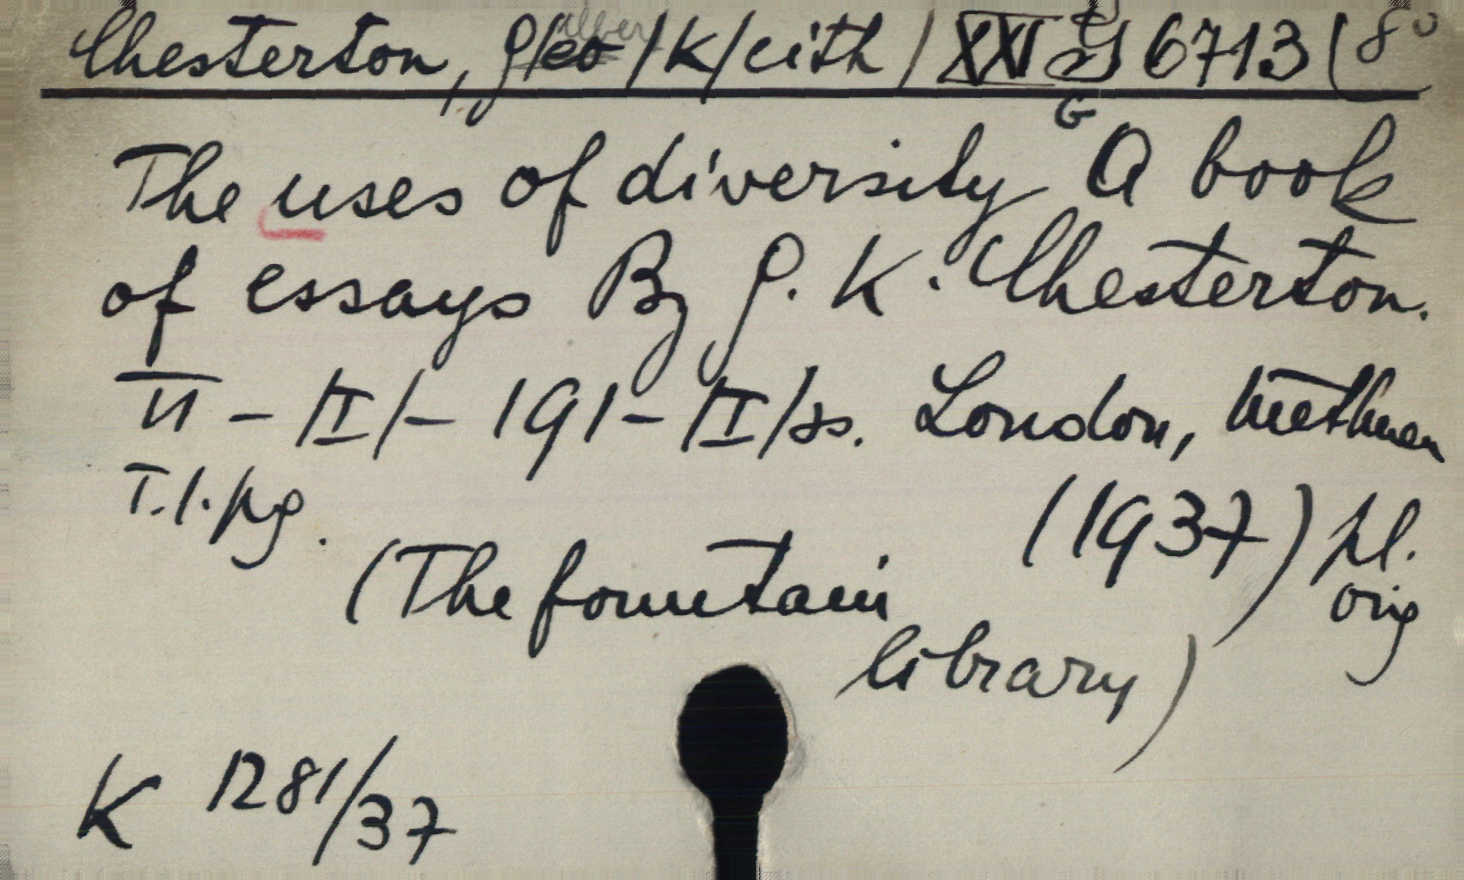 Chesterton, G/eo/K/eith/ XXI G 6713 (8°
G
The uses of diversity A book
of essays By G. K. Chesterton.
VI - /II/ - 191 - /I/ ss. London, Methuen
T.1.pg. (1937) pl.
orig
(The fountain
library)
K 1281/37